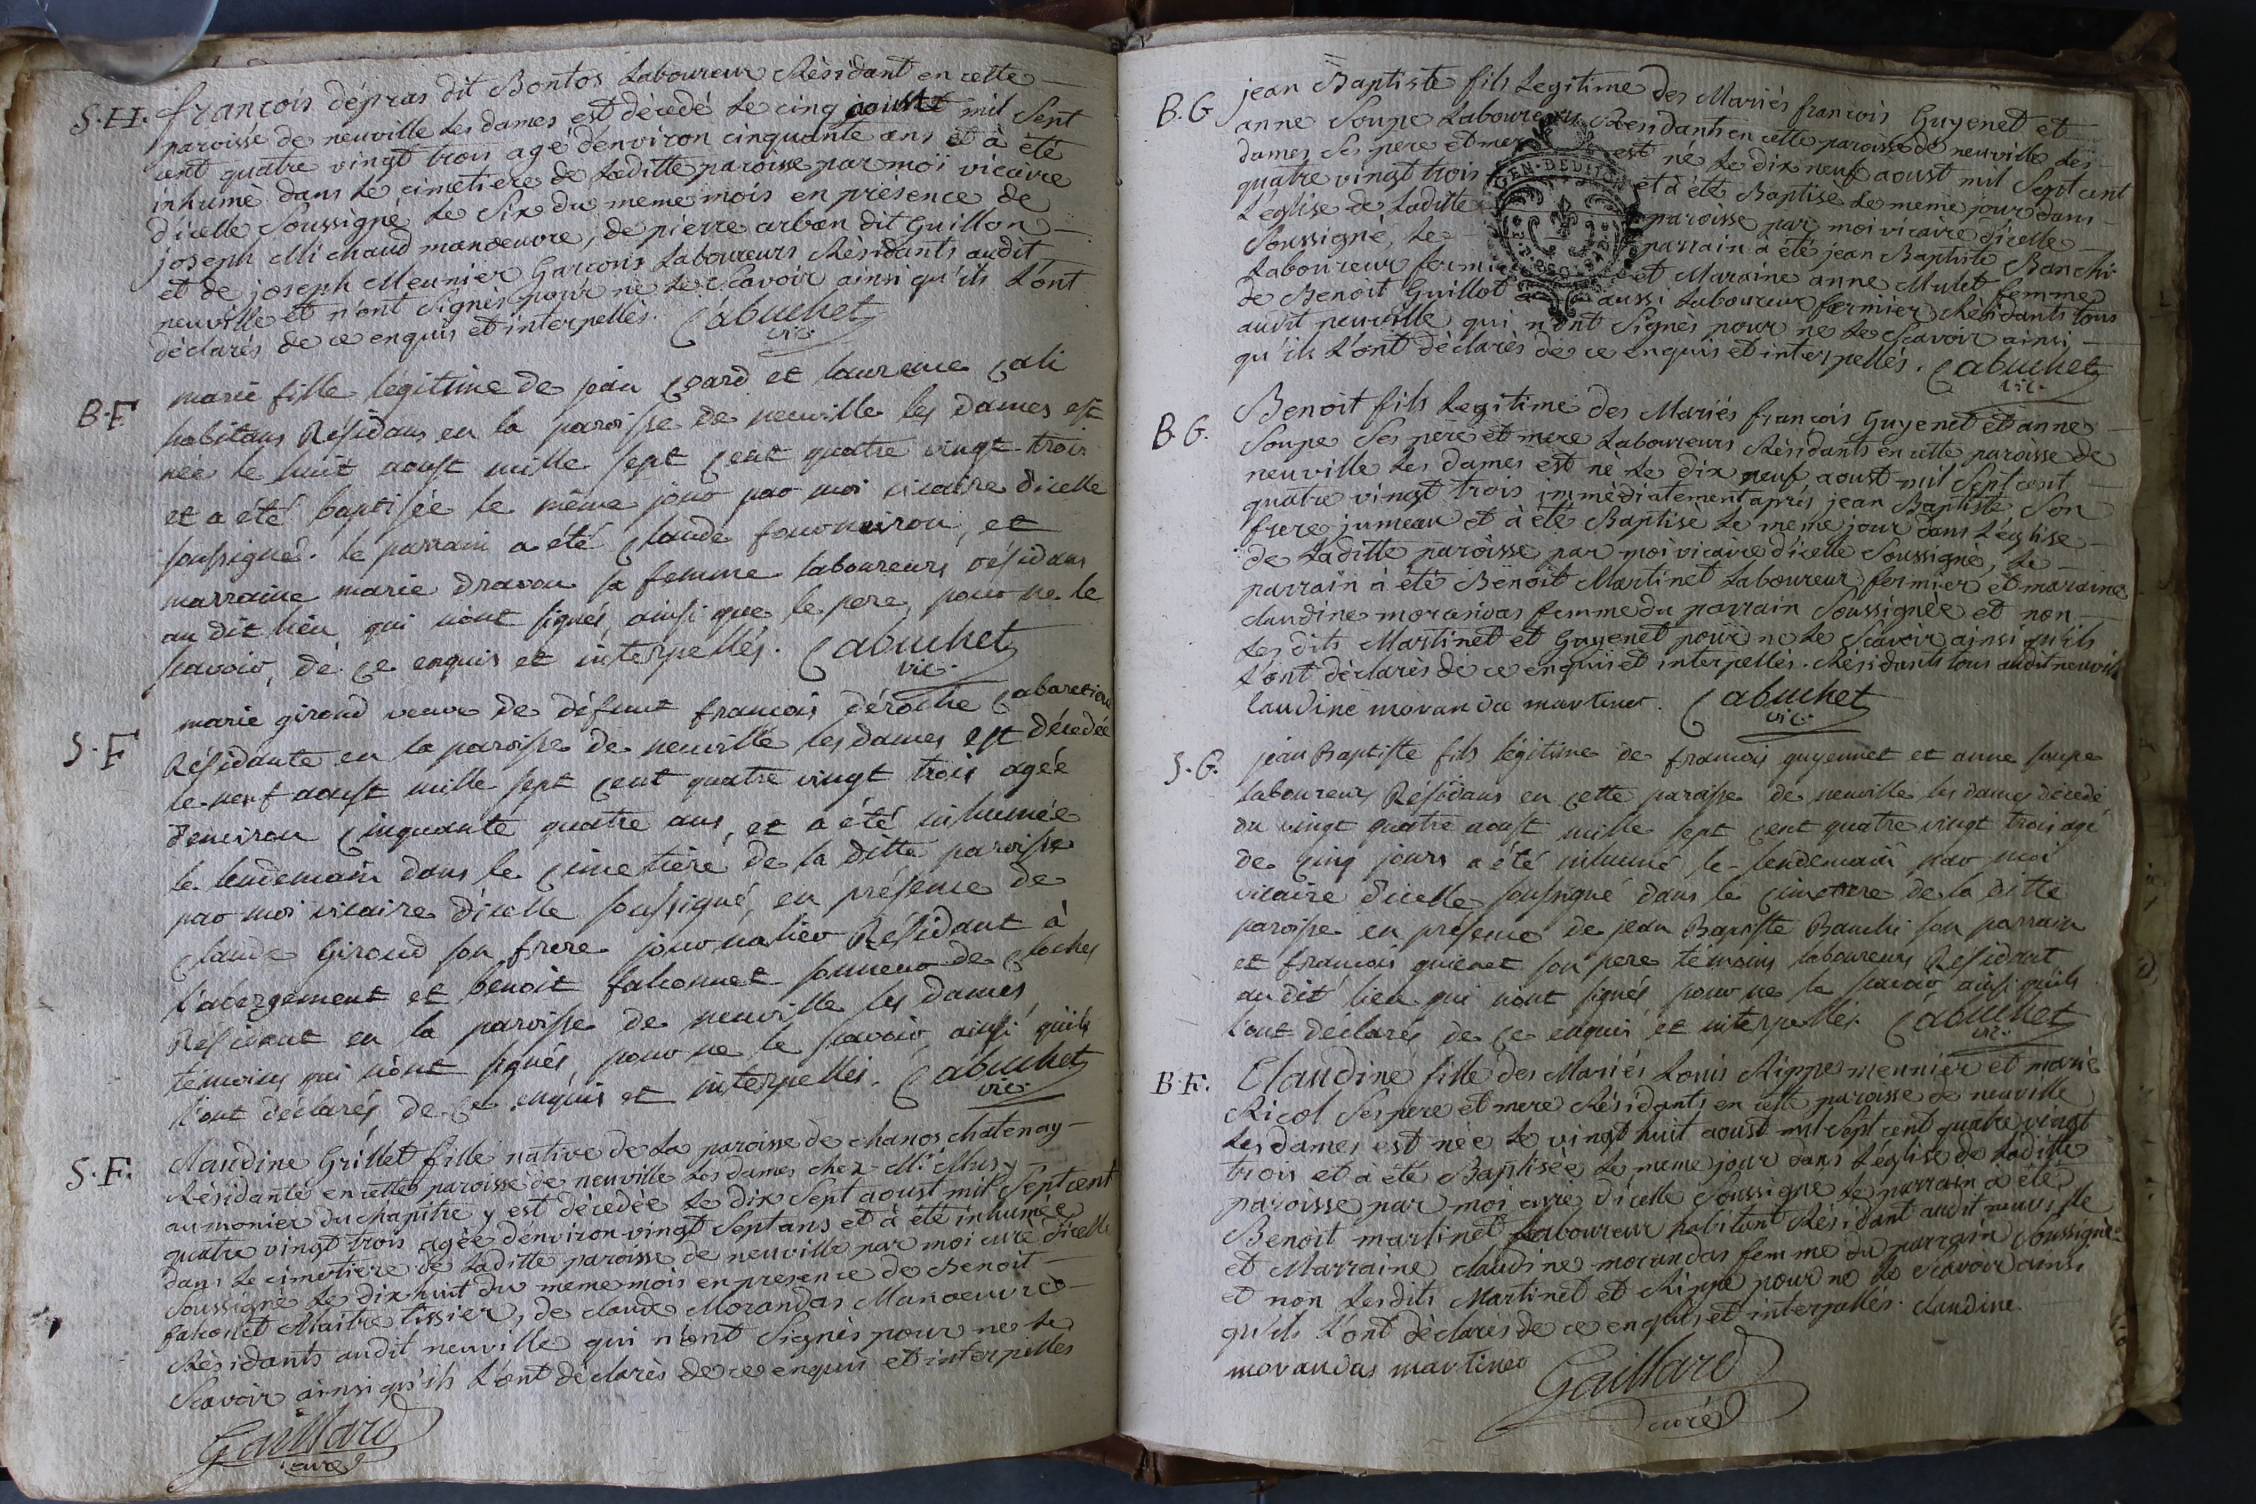 S.H. françois dépras dit Bontos Laboureur Résidant en cette
paroisse de neuville Les dames est décedé Le cinq aoust mil Sept
cent quatre vingt trois agé d'environ cinquante ans et à été
inhumé dans Le cimetiere de Laditte paroisse par moi vicaire
d'icelle Soussigné Le Six du meme mois en présence de
joseph Michaud manoeuvre, de pierre arban dit Guillon
et de joseph Meunier Garcons Laboureurs Résidants audit
neuville et n'ont Signés pour ne Le Scavoir ainsi qu'ils L'ont
déclarés de ce enquis et interpellés. Cabuchet
vic.
B.F. marie fille légitime de jean et laurence
habitans Résidans en la paroisse de neuville les dames est
née le huit aoust mille sept cent quatre vingt trois
et a été baptisée le même jour par moi vicaire d'icelle
soussigné. le parrain a été Claude et
marraine marie sa femme laboureurs résidans
au dit lieu qui n'ont signés ainsi que le pere, pour ne le
scavoir, de ce enquis et interpellés. Cabuchet
vic.
S.F. marie giroud veuve de défunt françois déroche Cabaretiere
Résidante en la paroisse de neuville les dames est décedée
le neuf aoust mille sept cent quatre vingt trois agée
d'environ cinquante quatre ans, et a été inhumée
le lendemain dans le cimetiere de la ditte paroisse
par moi vicaire d'icelle soussigné, en présence de
Claude Giroud son frere journalier Résidant à
l'abergement et benoit falconnet sonneur de cloches
Résidant en la paroisse de neuville les dames
témoins qui n'ont signés, pour ne le scavoir, ainsi qu'ils
l'ont déclarés de ce enquis et interpellés. Cabuchet
vic.
S.F. Claudine Grillet fille native de La paroisse de chanos chatenay
Résidante en cette paroisse de neuville Les dames chez Mr
aumonier du chapitre y est décedée Le dix Sept aoust mil Sept cent
quatre vingt trois agée d'environ vingt Sept ans et à été inhumée
dans Le cimetiere de Laditte paroisse de neuville par moi curé d'icelle
Soussigné Le dix huit du meme mois en presence de Benoit
falconet Maitre tissier, de claude Morandas Manoeuvre
Résidants audit neuville qui n'ont Signés pour ne Le
Scavoir ainsi qu'ils L'ont déclarés de ce enquis et interpellés
Gaillard
curé
B.G. jean Baptiste fils Legitime des Mariés françois Guyenet et
anne Soupe Laboureurs Residants en cette paroisse de neuville Les
dames Ses pere et mere est né Le dix neuf aoust mil Sept cent
quatre vingt trois et à été Baptisé Le meme jour dans
L'église de Laditte paroisse par moi vicaire d'icelle
Soussigné, Le parrain a été jean Baptiste Banchi
Laboureur fermier et Maraine anne Mulet femme
de Benoit Guillot aussi Laboureur fermier Résidants tous
audit neuville qui n'ont Signés pour ne Le Scavoir ainsi
qu'ils L'ont déclarés de ce enquis et interpellés. Cabuchet
vic.
GEN. DE DIJON
B.G. Benoit fils Legitime des Mariés françois Guyenet et anne
Soupe Ses pere et mere Laboureurs Résidants en cette paroisse de
neuville Les dames est né Le dix neuf aoust mil Sept cent
quatre vingt trois immédiatement aprés jean Baptiste Son
frere jumeau et à été Baptisé Le meme jour dans L'église
de Laditte paroisse par moi vicaire d'icelle Soussigné, Le
parrain à été Benoit Martinet Laboureur fermier et maraine
claudine morandas femme du parrain Soussignée et non
Les dits Martinet et Guyenet pour ne Le Scavoir ainsi qu'ils
L'ont déclarés de ce enquis et interpellés. Résidants tous audit neuville
laudine moranda martinet. Cabuchet
vic.
S.G. jean Baptiste fils légitime de françois guyennet et anne soupe
laboureurs Résidans en cette paroisse de neuville les dames décedé
du vingt quatre aoust mille sept cent quatre vingt trois agé
de cinq jours a été inhumé le lendemain par moi
vicaire d'icelle soussigné dans le cimetiere de la ditte
paroisse en présence de jean Baptiste Banchi son parrain
et françois guienet son pere témoins laboureurs Résidant
au dit lieu qui n'ont signés pour ne le scavoir ainsi qu'ils
l'ont déclarés de ce enquis et interpellés. Cabuchet
vic.
B.F. Claudine fille des Mariés Louis Rippe meunier et marie
Ricol Ses pere et mere Résidants en cette paroisse de neuville
Les dames est née Le vingt huit aoust mil Sept cent quatre vingt
trois et à été Baptisée Le meme jour dans L'église de Laditte
paroisse par moi curé d'icelle Soussigné Le parrain a été
Benoit martinet Laboureur habitant Résidant audit neuville
et Marraine claudine morandas femme du parrain Soussignée
et non Lesdits Martinet et Rippe pour ne Le Scavoir ainsi
qu'ils L'ont déclarés de ce enquis et interpellés. claudine
morandas martinet
Gaillard
curé